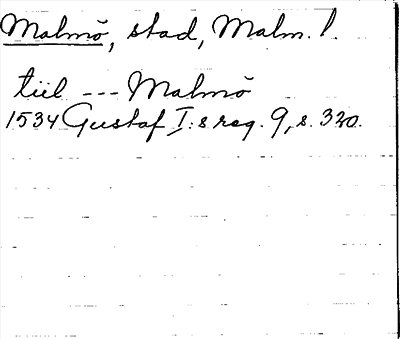 Malmö, stad, Malm. l.
tiil --- Malmö
1534 Gustaf I:s reg. 9, s. 320.